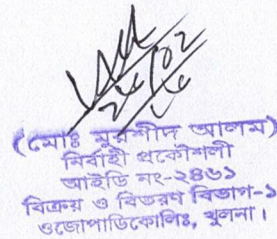 ২৫/০২
(মোঃ মুরশীদ আলম)
নির্বাহী প্রকৌশলী
আইডি নং-২৪৬১
বিক্রয় ও বিতরণ বিভাগ-১
ওজোপাডিকোলিঃ, খুলনা।